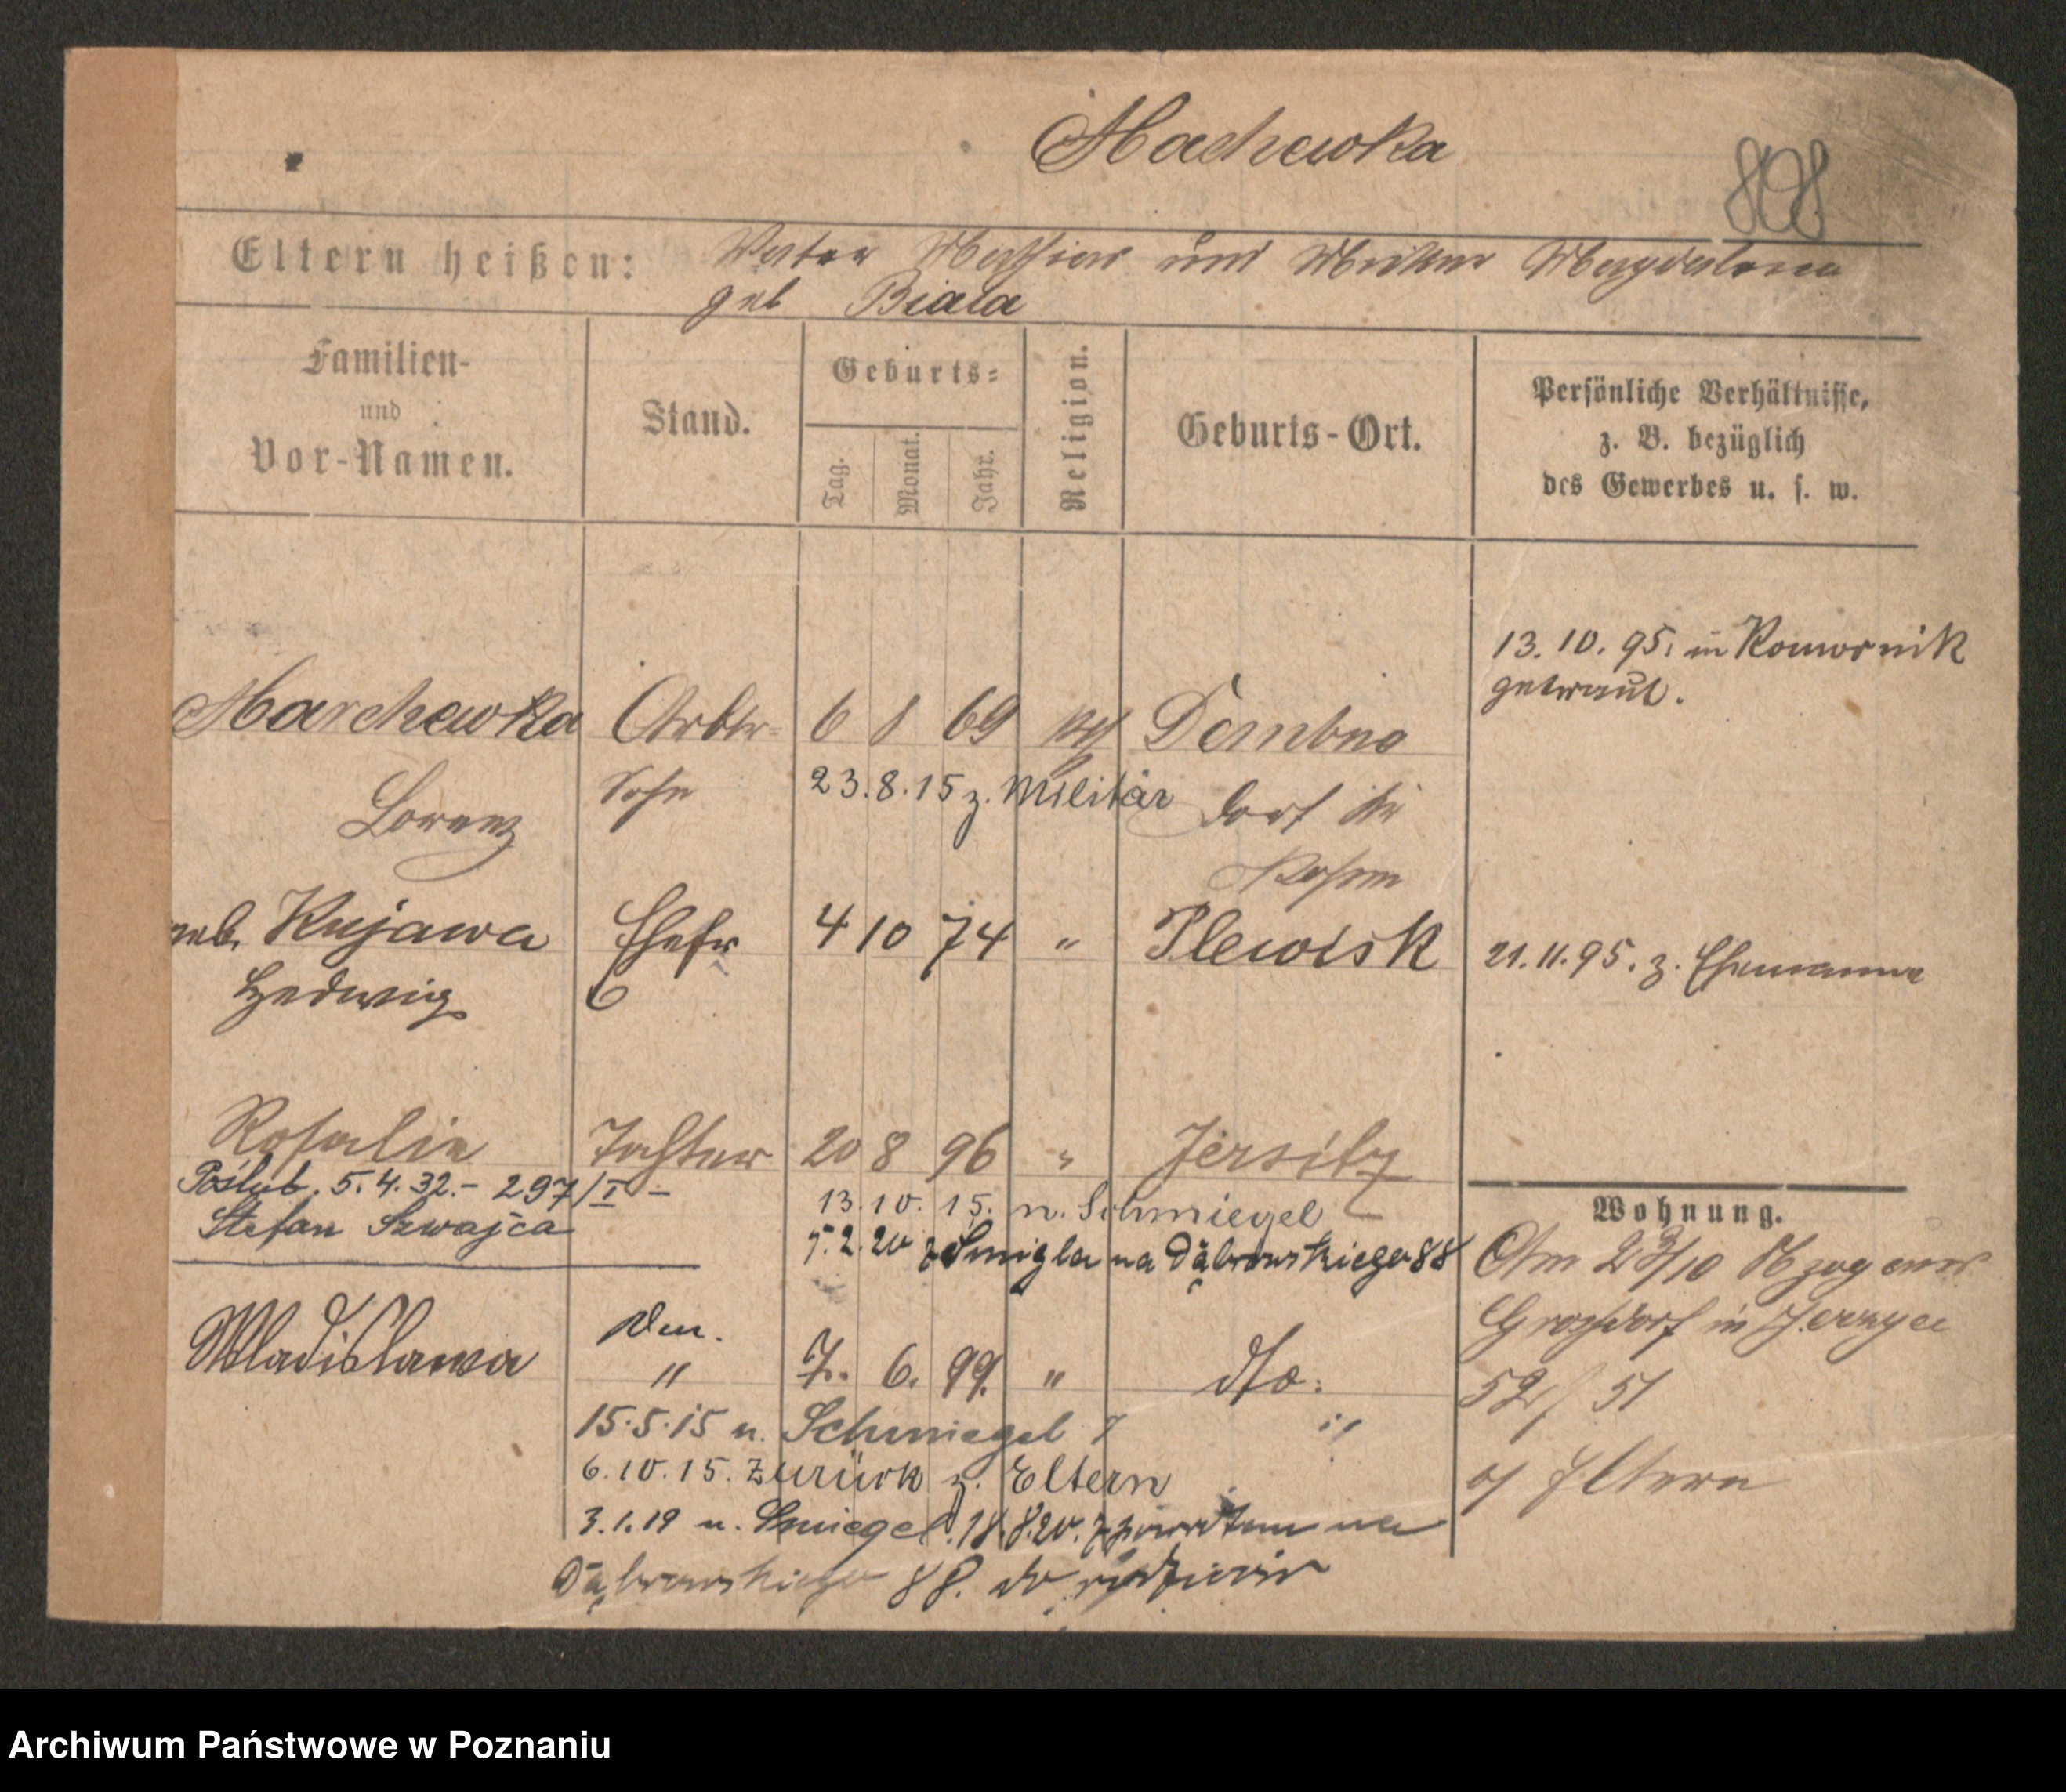 Machewka
808
Eltern heißen: Vater Mathias und Mutter Magdalena
geb Biała
Familien- und Vor-Namen.
Stand.
Geburts-
Tag. Monat. Jahr.
Religion.
Geburts-Ort.
Persönliche Verhältnisse,
z. B. bezüglich
des Gewerbes u. s. w.
13. 10. 95. in Komornik
getraut.
Marchewka Arbtr- 6 8 69 kth Dembno
Lorenz Sohn 23.8.15 z. Militär
Posen
geb. Kujawa Ehefr 4 10 74 " Plewisk 21.11.95. z. Ehemanne
Hedwig
Rosalie Tochter 20 8 96 " Jersitz
Poślub. 5.4.32.- 297/I -
Stefan Szwajca
13.10.15. n. Schmiegel
5.2.20 z Śmigla na Dąbrowskiego 88
Wohnung.
Am 23/10
in
52/51
Eltern
Wladislawa " 7. 6. 99. " dto.
15.5.15 n. Schmiegel "
6.10.15. zurück z. Eltern
3.1.19 n. Smiegel. 18.8.20. z powrotem na
Dąbrowskiego 88. do rodziców
Archiwum Państwowe w Poznaniu